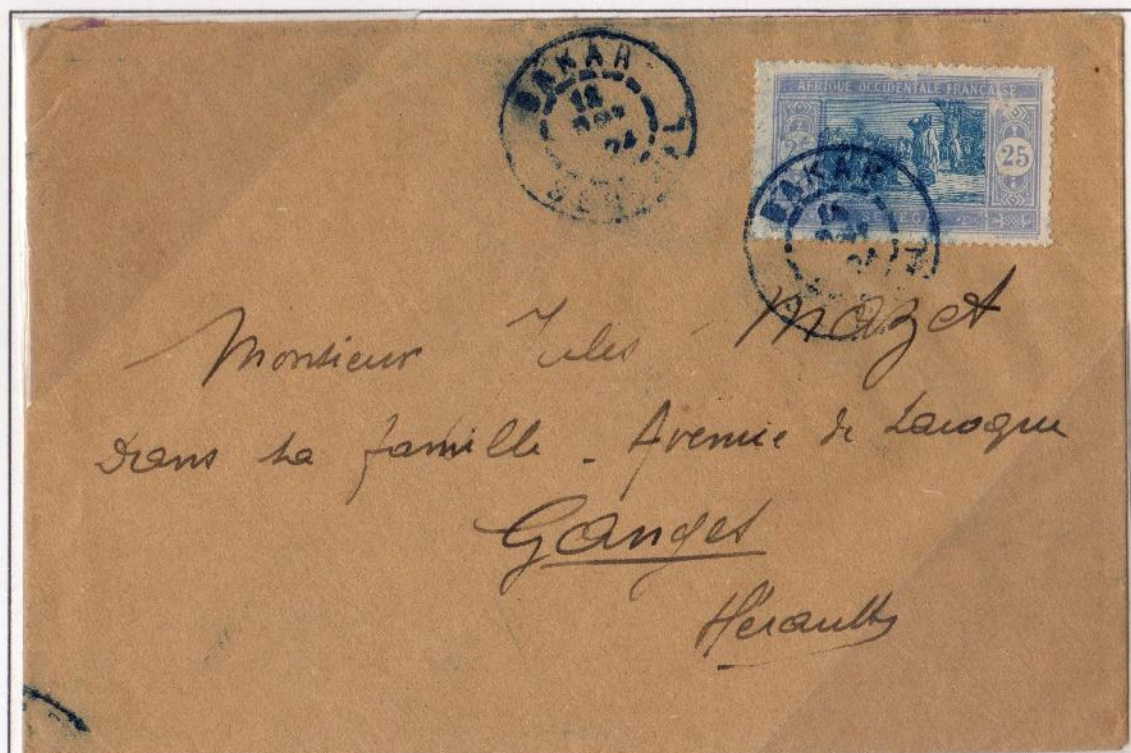 DAKAR
12
24
SENEGAL
AFRIQUE OCCIDENTALE FRANÇAISE
25 25
SÉNÉGAL
DAKAR
Monsieur Jules Mazet
Dans sa famille - Avenue de Laroque
Ganges
Hérault